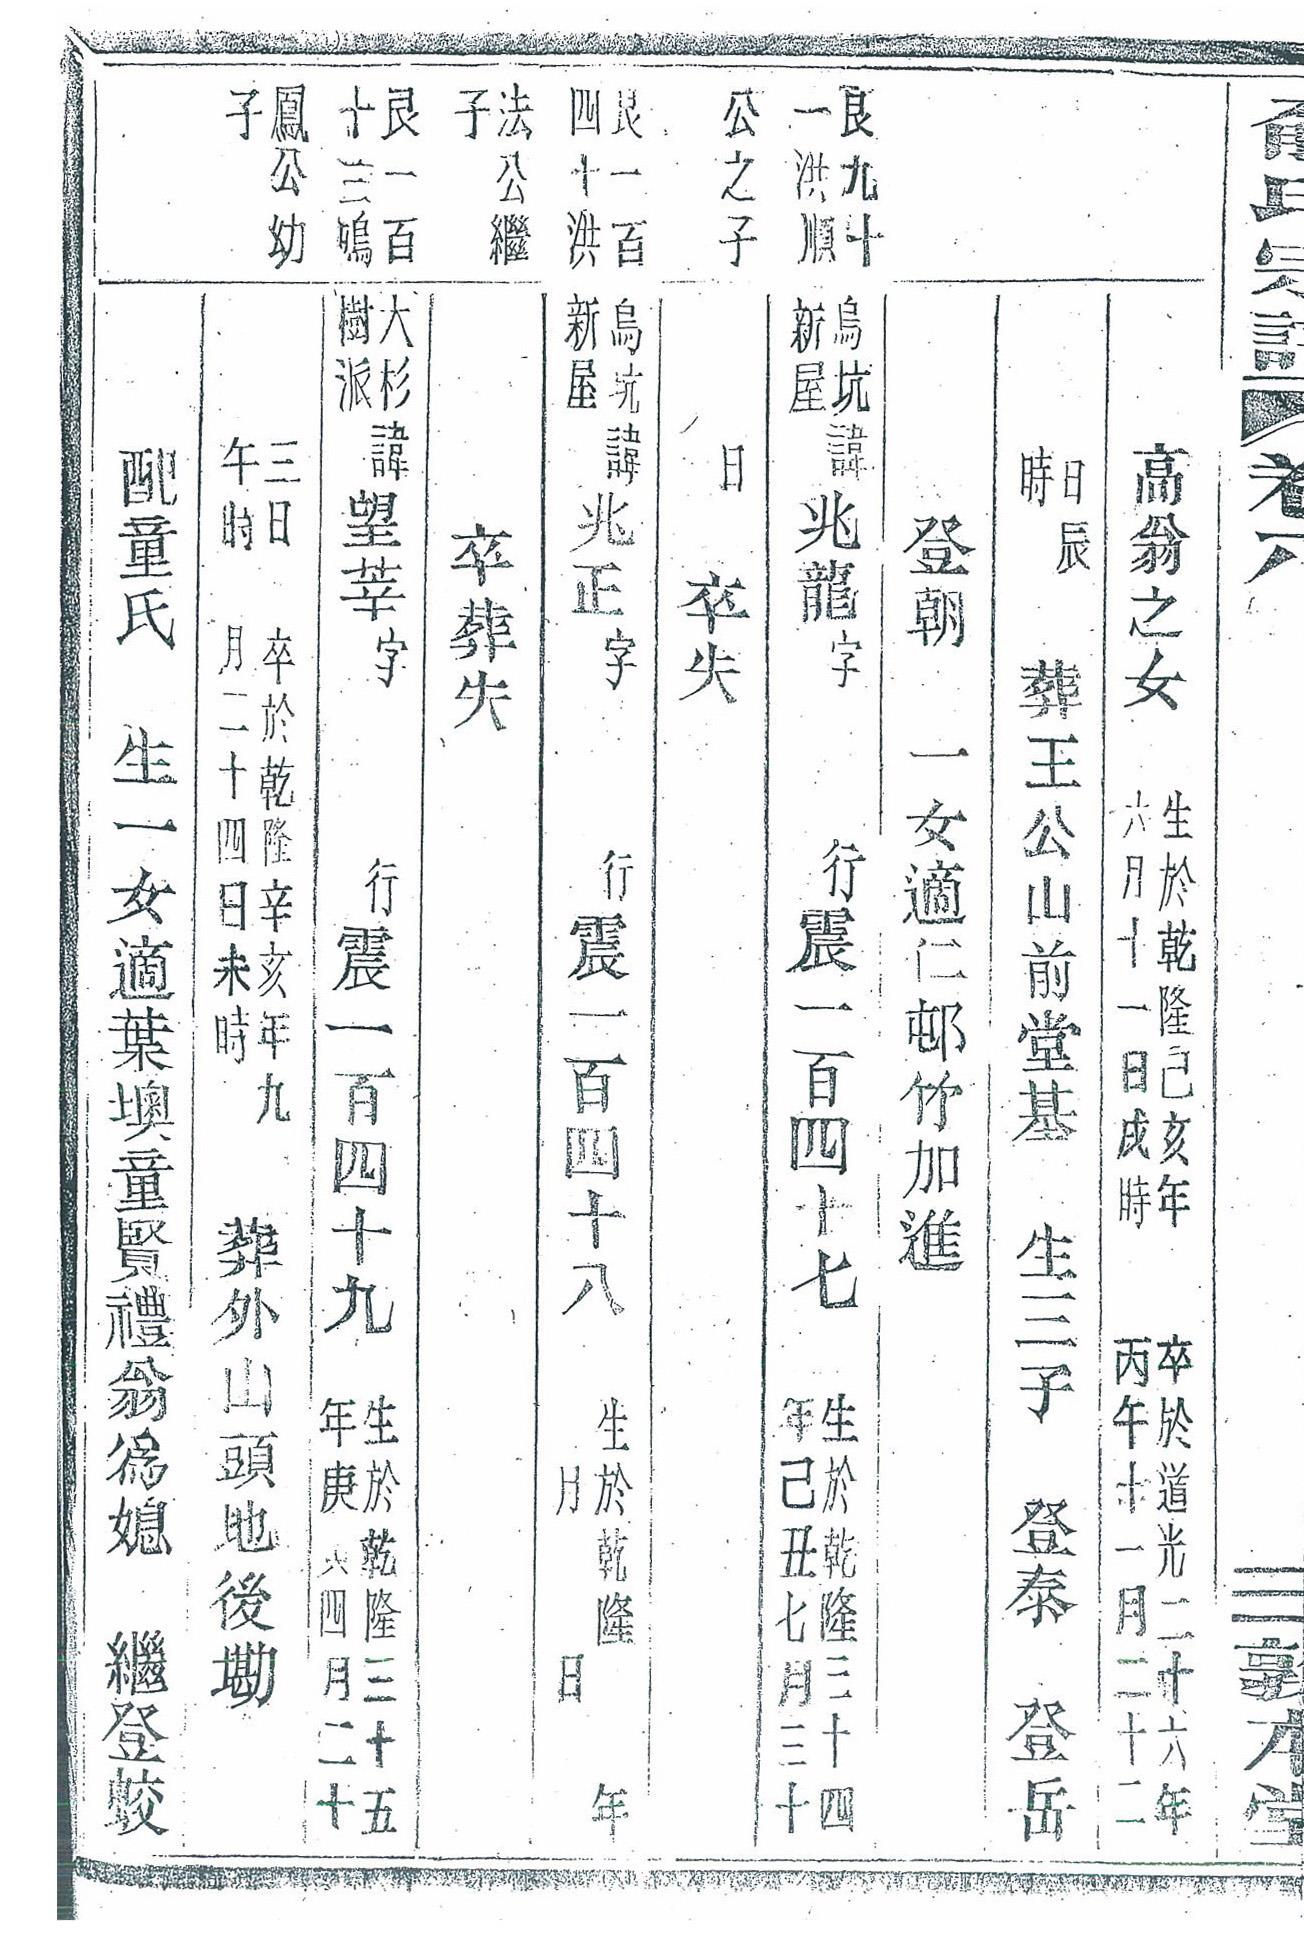 俞氏宗譜 卷八 三 敦本堂
高翁之女 生於乾隆己亥年六月十一日戌時 卒於道光二十六年丙午十一月二十二
日辰時 葬王公山前堂基 生三子 登泰 登岳
登朝 一女適仁邨竹加進
艮九十一洪順
烏坑新屋 諱兆龍字 行震一百四十七 生於乾隆三十四年己丑七月三十
公之子
日 卒失
艮一百四十洪
烏坑新屋 諱兆正字 行震一百四十八 生於乾隆 年 月 日
法公繼子
卒葬失
艮一百十三鳴
大杉樹派 諱望莘字 行震一百四十九 生於乾隆三十五年庚 四月二十
鳳公幼子
三日午時 卒於乾隆辛亥年九月二十四日未時 葬外山頭地後墈
配童氏 生一女適葉墺童賢禮翁爲媳 繼登蛟